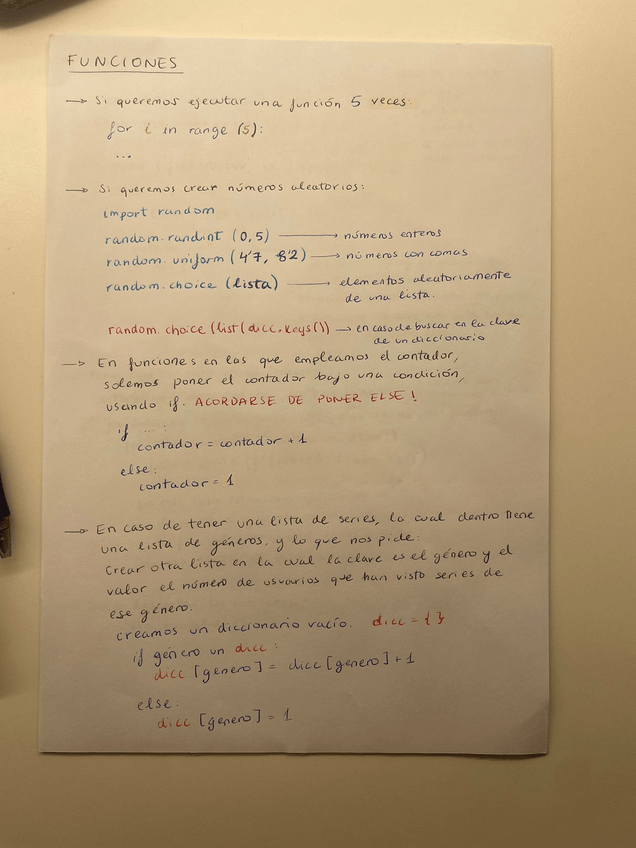 FUNCIONES
→ Si queremos ejecutar una función 5 veces:
for i in range (5):
...
→ Si queremos crear números aleatorios:
import random
random.randint (0,5) → números enteros
random.uniform (4'7, 8'2) → números con comas
random.choice (lista) → elementos aleatoriamente
de una lista.
random.choice (list(dicc.keys()) → en caso de buscar en la clave
de un diccionario
→ En funciones en las que empleamos el contador,
solemos poner el contador bajo una condición,
usando if. ACORDARSE DE PONER ELSE!
if ... :
contador = contador + 1
else:
contador = 1
→ En caso de tener una lista de series, la cual dentro tiene
una lista de géneros, y lo que nos pide:
Crear otra lista en la cual la clave es el género y el
valor el número de usuarios que han visto series de
ese género.
creamos un diccionario vacío. dicc = { }
if género un dicc :
dicc [genero] = dicc [genero] + 1
else:
dicc [genero] = 1